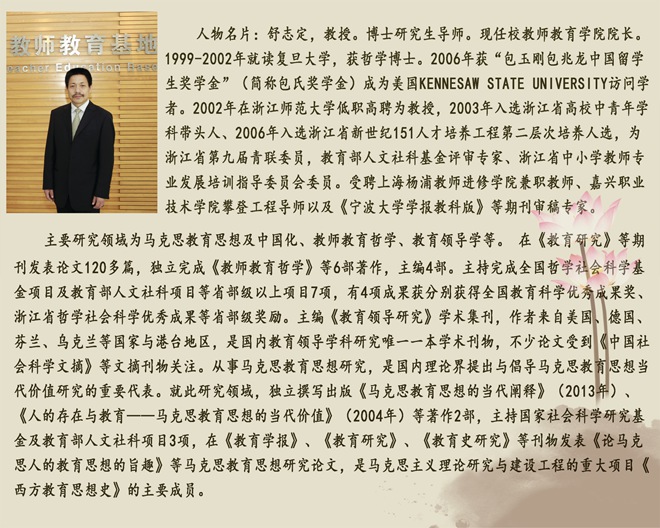 教师教育基地
Teacher Education Base
人物名片：舒志定，教授。博士研究生导师。现任校教师教育学院院长。
1999-2002年就读复旦大学，获哲学博士。2006年获“包玉刚包兆龙中国留学
生奖学金”（简称包氏奖学金）成为美国KENNESAW STATE UNIVERSITY访问学
者。2002年在浙江师范大学低职高聘为教授，2003年入选浙江省高校中青年学
科带头人、2006年入选浙江省新世纪151人才培养工程第二层次培养人选，为
浙江省第九届青联委员，教育部人文社科基金评审专家、浙江省中小学教师专
业发展培训指导委员会委员。受聘上海杨浦教师进修学院兼职教师、嘉兴职业
技术学院攀登工程导师以及《宁波大学学报教科版》等期刊审稿专家。
主要研究领域为马克思教育思想及中国化、教师教育哲学、教育领导学等。 在《教育研究》等期
刊发表论文120多篇，独立完成《教师教育哲学》等6部著作，主编4部。主持完成全国哲学社会科学基
金项目及教育部人文社科项目等省部级以上项目7项，有4项成果获分别获得全国教育科学优秀成果奖、
浙江省哲学社会科学优秀成果等省部级奖励。主编《教育领导研究》学术集刊，作者来自美国、德国、
芬兰、乌克兰等国家与港台地区，是国内教育领导学科研究唯一一本学术刊物，不少论文受到《中国社
会科学文摘》等文摘刊物关注。从事马克思教育思想研究，是国内理论界提出与倡导马克思教育思想当
代价值研究的重要代表。就此研究领域，独立撰写出版《马克思教育思想的当代阐释》（2013年）、
《人的存在与教育——马克思教育思想的当代价值》（2004年）等著作2部，主持国家社会科学研究基
金及教育部人文社科项目3项，在《教育学报》、《教育研究》、《教育史研究》等刊物发表《论马克
思人的教育思想的旨趣》等马克思教育思想研究论文，是马克思主义理论研究与建设工程的重大项目《
西方教育思想史》的主要成员。